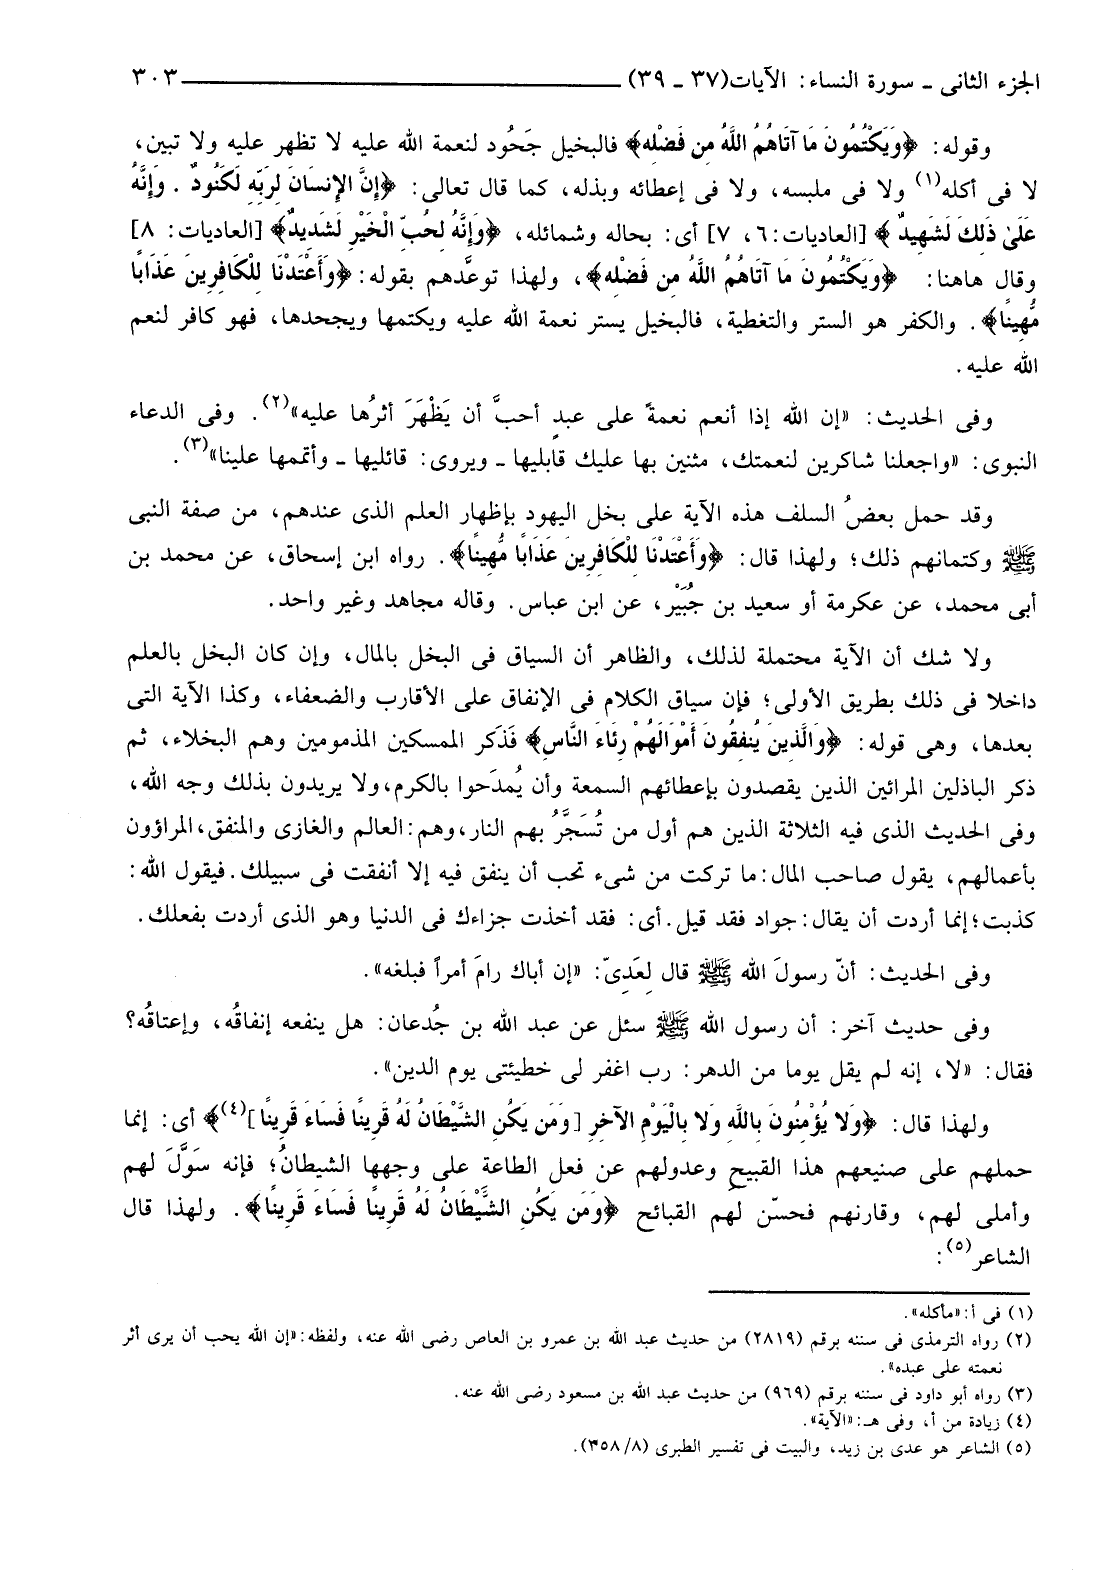 الجزء الثانى ـ سورة النساء: الآيات(٣٧ ـ ٣٩) ٣٠٣
وقوله: ﴿وَيَكْتُمُونَ مَا آتَاهُمُ اللَّهُ مِن فَضْلِه﴾ فالبخيل جَحُود لنعمة الله عليه لا تظهر عليه ولا تبين،
لا فى أكله(١) ولا فى ملبسه، ولا فى إعطائه وبذله، كما قال تعالى: ﴿إِنَّ الإِنسَانَ لِرَبِّهِ لَكَنُودٌ . وَإِنَّهُ
عَلَىٰ ذَلِكَ لَشَهِيدٌ ﴾ [العاديات:٦، ٧] أى: بحاله وشمائله، ﴿وَإِنَّهُ لِحُبِّ الْخَيْرِ لَشَدِيدٌ﴾ [العاديات: ٨]
وقال هاهنا: ﴿وَيَكْتُمُونَ مَا آتَاهُمُ اللَّهُ مِن فَضْلِه﴾، ولهذا توعَّدهم بقوله: ﴿وَأَعْتَدْنَا لِلْكَافِرِينَ عَذَابًا
مُّهِينًا﴾. والكفر هو الستر والتغطية، فالبخيل يستر نعمة الله عليه ويكتمها ويجحدها، فهو كافر لنعم
الله عليه.
وفى الحديث: «إن الله إذا أنعم نعمةً على عبدٍ أحبَّ أن يَظْهَرَ أثرُها عليه»(٢). وفى الدعاء
النبوى: «واجعلنا شاكرين لنعمتك، مثنين بها عليك قابليها ـ ويروى: قائليها ـ وأتممها علينا»(٣).
وقد حمل بعضُ السلف هذه الآية على بخل اليهود بإظهار العلم الذى عندهم، من صفة النبى
ﷺ وكتمانهم ذلك؛ ولهذا قال: ﴿وَأَعْتَدْنَا لِلْكَافِرِينَ عَذَابًا مُّهِينًا﴾. رواه ابن إسحاق، عن محمد بن
أبى محمد، عن عكرمة أو سعيد بن جُبَيْر، عن ابن عباس. وقاله مجاهد وغير واحد.
ولا شك أن الآية محتملة لذلك، والظاهر أن السياق فى البخل بالمال، وإن كان البخل بالعلم
داخلا فى ذلك بطريق الأولى؛ فإن سياق الكلام فى الإنفاق على الأقارب والضعفاء، وكذا الآية التى
بعدها، وهى قوله: ﴿وَالَّذِينَ يُنفِقُونَ أَمْوَالَهُمْ رِئَاءَ النَّاسِ﴾ فَذَكر الممسكين المذمومين وهم البخلاء، ثم
ذكر الباذلين المرائين الذين يقصدون بإعطائهم السمعة وأن يُمدَحوا بالكرم،ولا يريدون بذلك وجه الله،
وفى الحديث الذى فيه الثلاثة الذين هم أول من تُسَجَّرُ بهم النار،وهم:العالم والغازى والمنفق،المراؤون
بأعمالهم، يقول صاحب المال:ما تركت من شىء تحب أن ينفق فيه إلا أنفقت فى سبيلك.فيقول الله:
كذبت؛إنما أردت أن يقال:جواد فقد قيل.أى: فقد أخذت جزاءك فى الدنيا وهو الذى أردت بفعلك.
وفى الحديث: أنّ رسولَ الله ﷺ قال لِعَدِىّ: «إن أباك رامَ أمراً فبلغه».
وفى حديث آخر: أن رسول الله ﷺ سئل عن عبد الله بن جُدعان: هل ينفعه إنفاقُه، وإعتاقُه؟
فقال: «لا، إنه لم يقل يوما من الدهر: رب اغفر لى خطيئتى يوم الدين».
ولهذا قال: ﴿وَلا يُؤْمِنُونَ بِاللَّهِ وَلا بِالْيَوْمِ الآخِرِ [وَمَن يَكُنِ الشَّيْطَانُ لَهُ قَرِينًا فَسَاءَ قَرِينًا](٤)﴾ أى: إنما
حملهم على صنيعهم هذا القبيح وعدولهم عن فعل الطاعة على وجهها الشيطانُ؛ فإنه سَوَّلَ لهم
وأملى لهم، وقارنهم فحسّن لهم القبائح ﴿وَمَن يَكُنِ الشَّيْطَانُ لَهُ قَرِينًا فَسَاءَ قَرِينًا﴾. ولهذا قال
الشاعر(٥):
(١) فى أ:«مأكله».
(٢) رواه الترمذى فى سننه برقم (٢٨١٩) من حديث عبد الله بن عمرو بن العاص رضى الله عنه، ولفظه:«إن الله يحب أن يرى أثر
نعمته على عبده».
(٣) رواه أبو داود فى سننه برقم (٩٦٩) من حديث عبد الله بن مسعود رضى الله عنه.
(٤) زيادة من أ، وفى هـ:«الآية».
(٥) الشاعر هو عدى بن زيد، والبيت فى تفسير الطبرى (٨/ ٣٥٨).